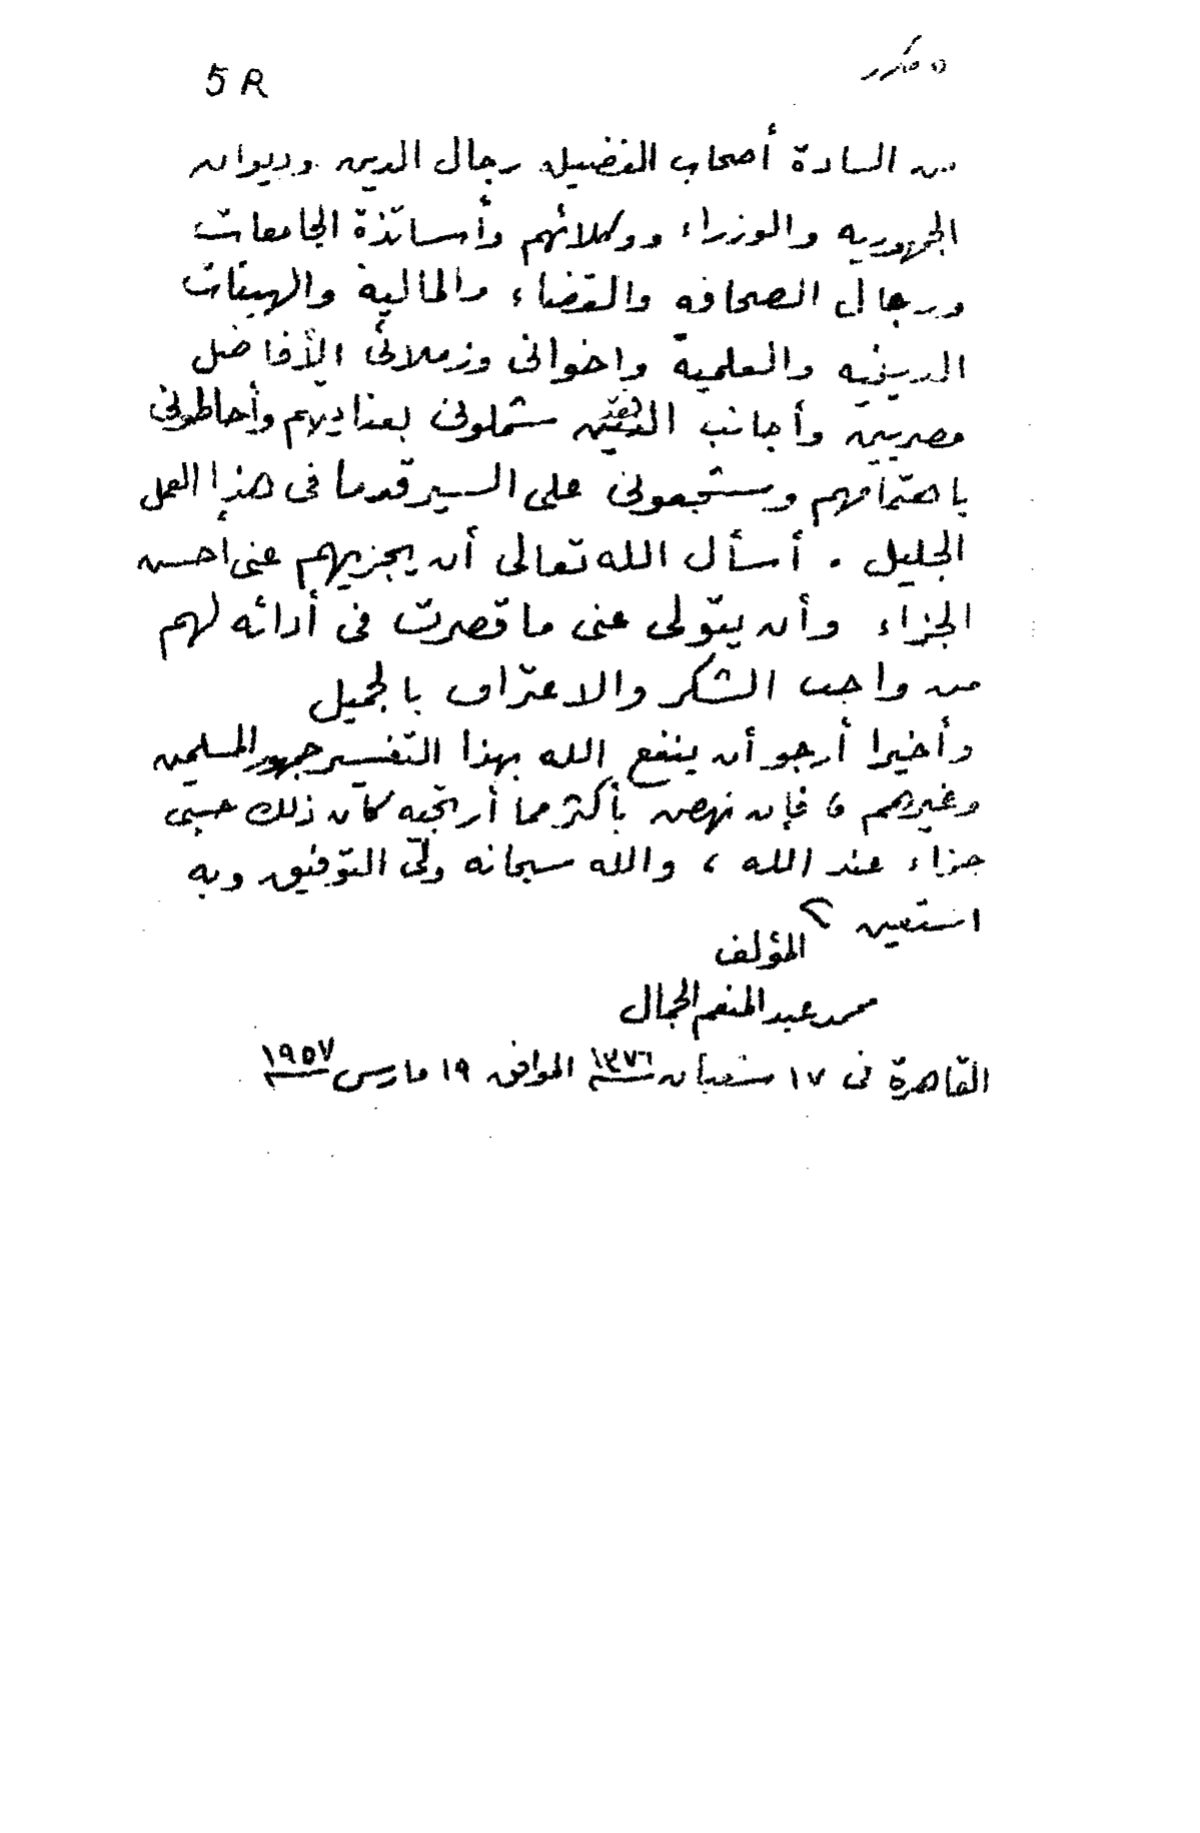 ٥ مكرر
5R
من السادة أصحاب الفضيله رجال الدين وديوان
الجمهوريه والوزراء ووكلائهم وأساتذة الجامعات
ورجال الصحافه والقضاء والمالية والهيئات
الدينيه والعلمية واخوانى وزملائى الأفاضل
مصريين وأجانب شملونى بعنايتهم وأحاطونى
باهتمامهم وشجعونى على السير قدما فى هذا العمل
الجليل . أسأل الله تعالى أن يجزيهم عنى أحسن
الجزاء وأن يتولى عنى ما قصرت فى أدائه لهم
من واجب الشكر والاعتراف بالجميل
وأخيرا أرجو أن ينفع الله بهذا التفسير جمهور المسلمين
وغيرهم ، فإن نهض بأكثر مما أرتجيه كان ذلك حسبى
جزاء عند الله ، والله سبحانه ولىّ التوفيق وبه
استعين
المؤلف
محمد عبد المنعم الجمال
القاهرة فى ١٧ شعبان ١٣٧٦ الموافق ١٩ مارس ١٩٥٧